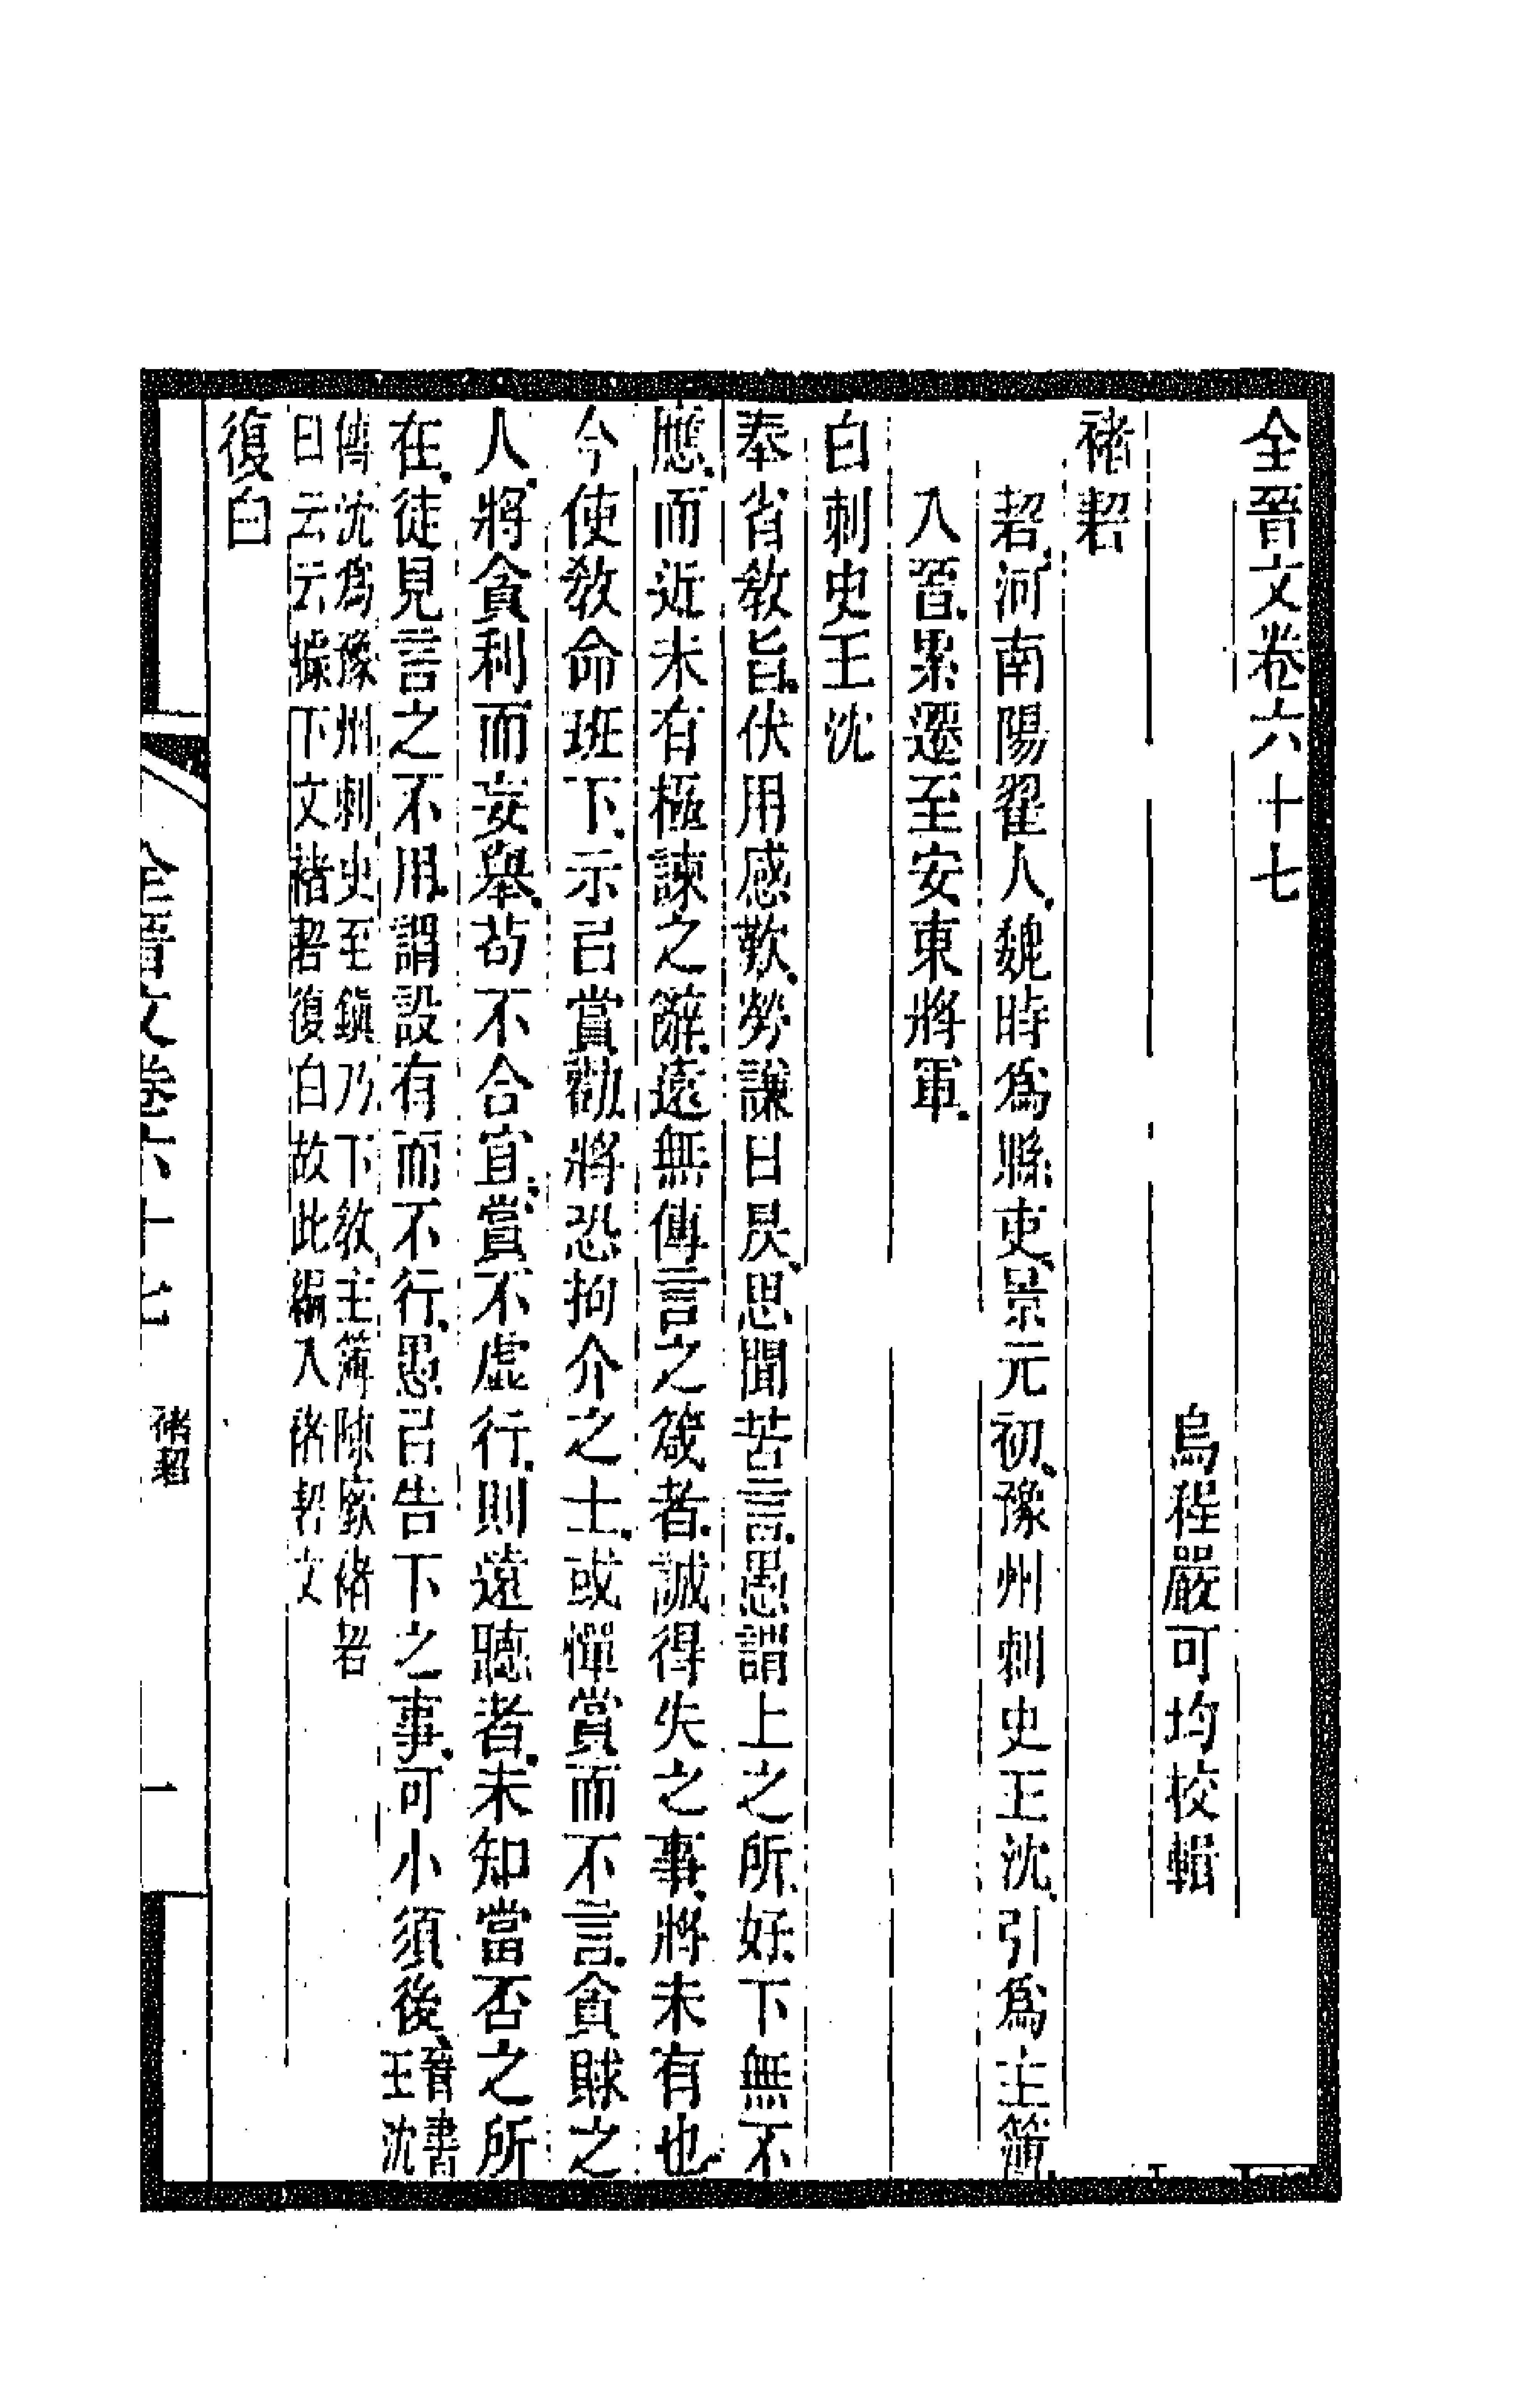 全晉文卷六十七
烏程嚴可均校輯
褚䂮
䂮河南陽翟人魏時爲縣吏景元初豫州刺史王沈引爲主簿
入晉累遷至安東將軍
白刺史王沈
奉省敎旨伏用感歎勞謙日昃思聞苦言愚謂上之所好下無不
應而近未有極諫之辭遠無傳言之箴者誠得失之事將未有也
今使敎命班下示已賞勸將恐拘介之士或憚賞而不言貪賕之
人將貪利而妄舉苟不合宜賞不虛行則遠聽者未知當否之所
在徒見言之不用謂設有而不行愚已告下之事可小須後晉書王沈
傳沈爲豫州刺史至鎮乃下敎主簿陳廞褚䂮
曰云云據下文褚䂮復白故此編入褚䂮文
復白
全晉文卷六十七
褚䂮
一